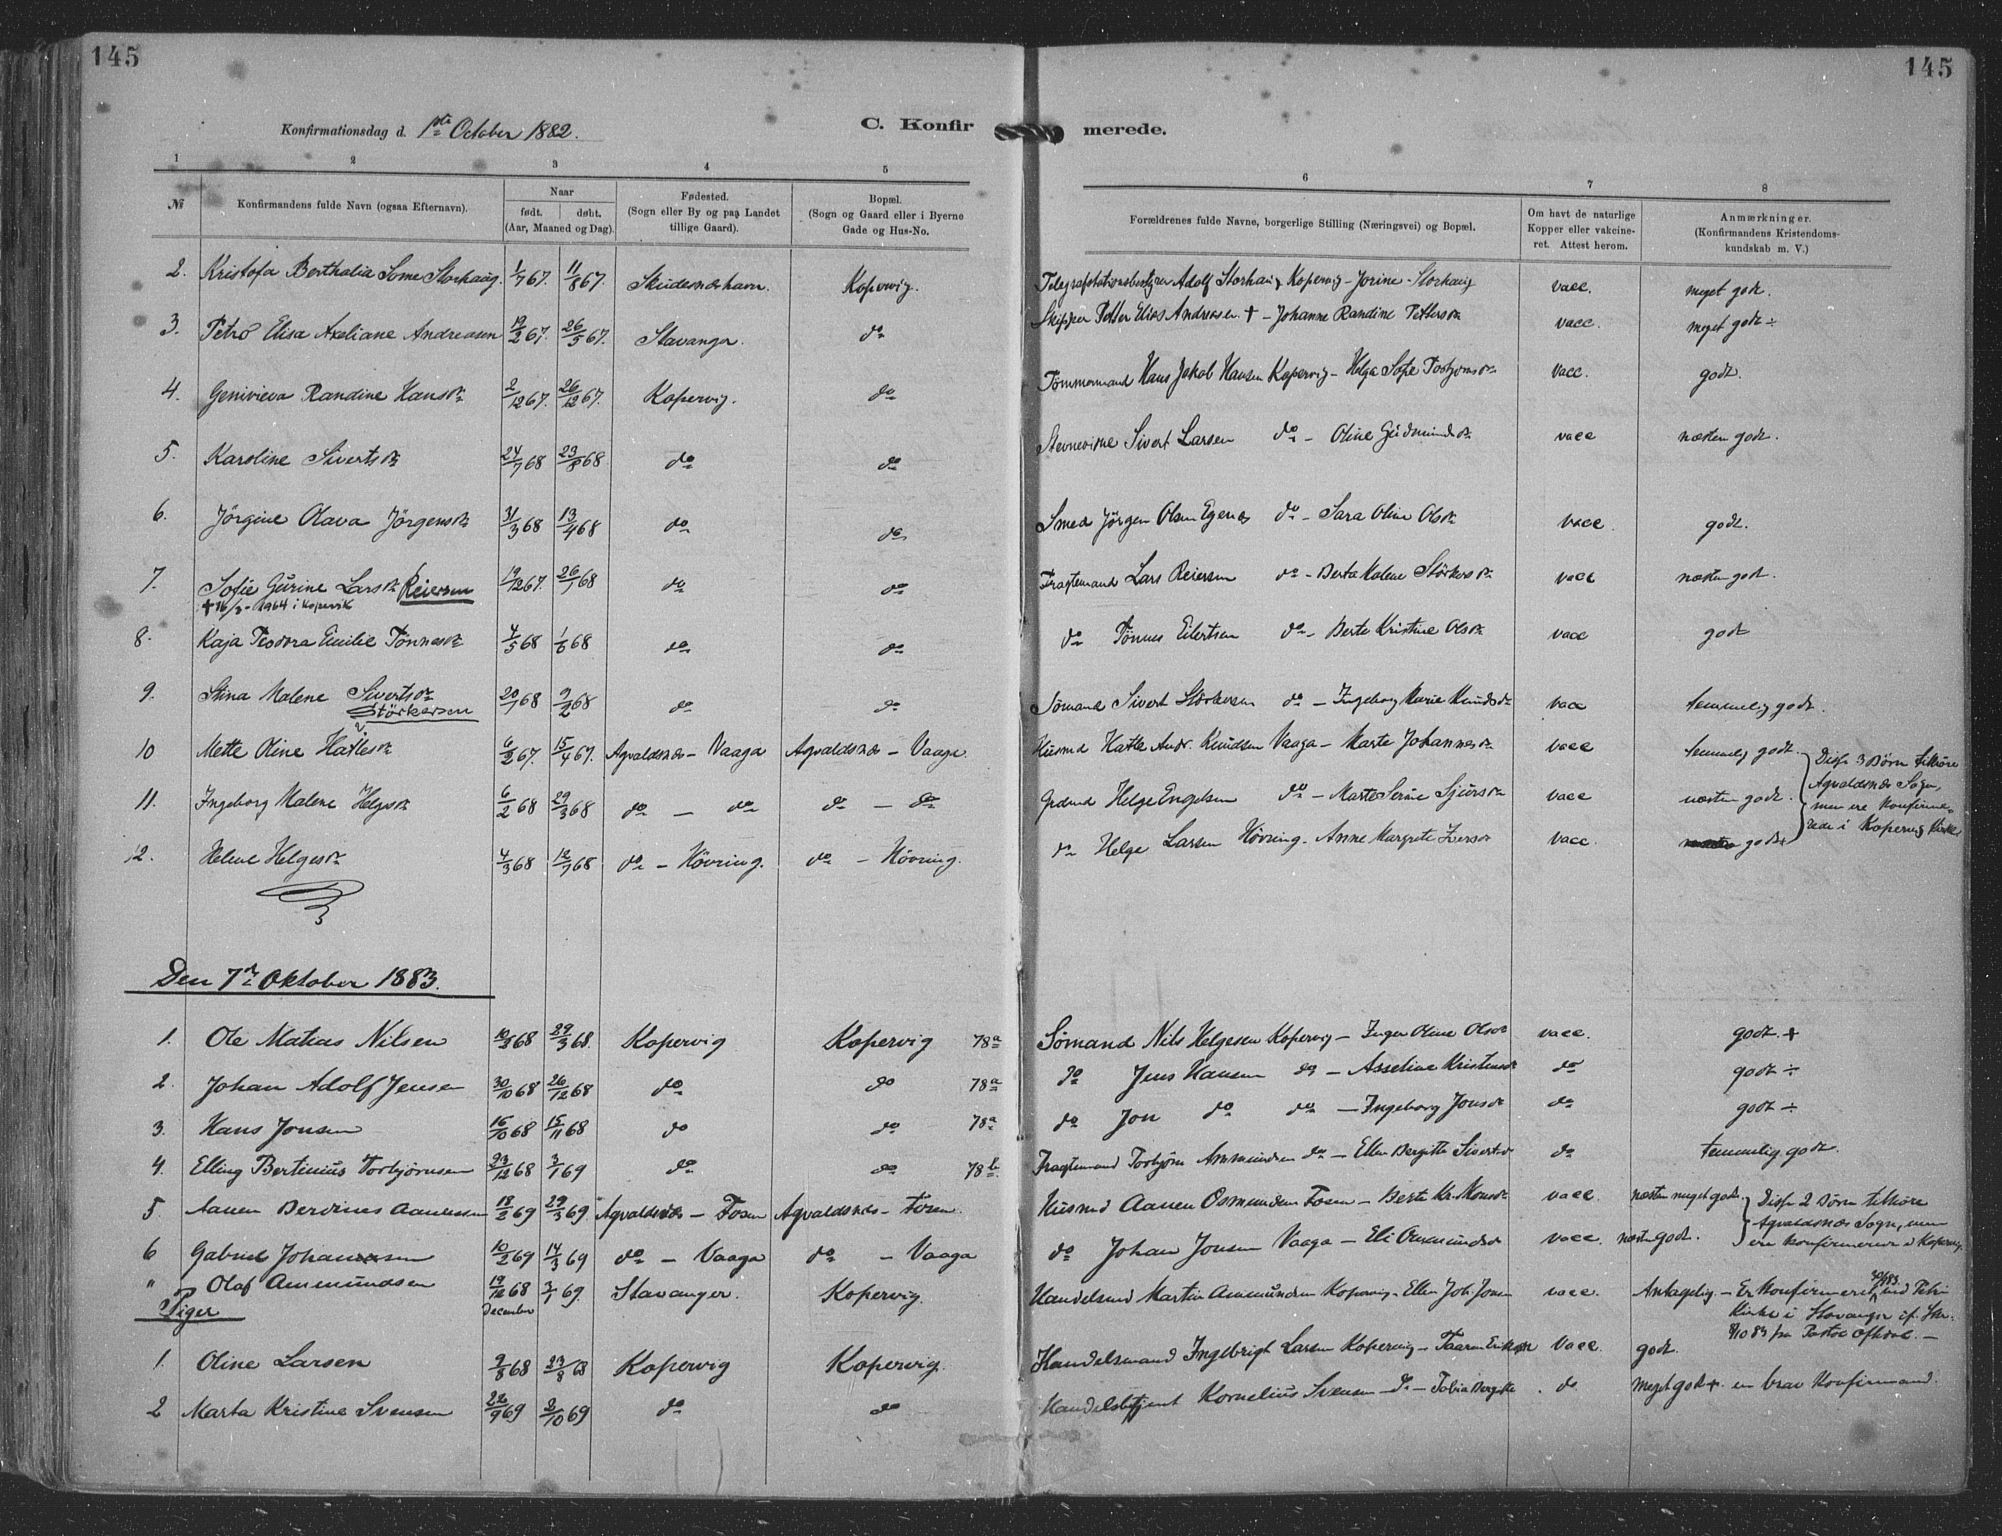 145
145
Konfirmationsdag d. 1ste October 1882.
C. Konfir merede.
1 2 3 4 5 6 7 8
№ Konfirmandens fulde Navn (ogsaa Efternavn). Naar født. døbt. (Aar, Maaned og Dag). Fødested. (Sogn eller By og paa Landet tillige Gaard). Bopæl. (Sogn og Gaard eller i Byerne Gade og Hus-No. Forældrenes fulde Navne, borgerlige Stilling (Næringsvei) og Bopæl. Om havt de naturlige Kopper eller vakcineret. Attest herom. Anmærkninger. (Konfirmandens Kristendomskundskab m. V.)
2. Kristofa Berthalia Some Storhaug 1/7 67. 11/8 67. Skudesnæshavn. Kopervig. Telegrafstationsbestyrer Adolf Storhaug Kopervig - Jorine Storhaug vacc. meget godt.
3. Petrô Elisa Axeliane Andreasen 19/2 67. 26/5 67. Stavanger. do Skipper Petter Elias Andreasen † - Johanne Randine Pettersdr vacc. meget godt ÷
4. Genivieva Randine Hansdr 2/12 67. 26/12 67. Kopervig. do Tømmermand Hans Jakob Hansen Kopervig - Helga Sofie Torbjørnsdr vacc. godt.
5. Karoline Sivertsdr 24/7 68 23/8 68 do do Stevnevidne Sivert Larsen do - Oline Gudmundsdr vacc næsten godt.
6. Jörgine Olava Jörgensdr 31/3 68 13/4 68 do do Smed Jörgen Olsen Egenæs do - Sara Oline Olsdr vacc. godt.
7. Sofie Gurine Larsdr Reiersen 19/12 67. 26/1 68 do do Fragtemand Lars Reiersen do - Berta Malene Störkersdr vacc næsten godt.
† 16/3 - 1964 i Kopervik
8. Kaja Teodora Emilie Tönnesdr 4/5 68 1/6 68 do do do Tönnes Eilertsen do - Berte Kristine Olsdr vacc godt
9. Stina Malene Sivertsdr 20/1 68 9/2 68 do do Sømand Sivert Störkersen do - Ingeborg Marie Knudsdr vacc temmelig godt.
Störkersen
10 Mette Oline Hatlesdr 6/2 67. 15/4 67. Agvaldsnæs - Vaaga Agvaldsnæs - Vaaga. Husmd Hatle Andr. Knudsen Vaaga - Marte Johannesdr vacc temmelig godt. Disse 3 Børn tilhøre
11. Ingeborg Malene Helgesdr 6/2 68 29/3 68 do - do do - do Grdmd Helge Engelsen do - Marte Serine Sjursdr vacc næsten godt. Agvaldsnæs Sogn, men ere konfirmerede i Kopervig Kirke
12. Helene Helgesdr 4/3 68 12/7 68 do - Hövring. do - Hövring. do Helge Larsen Hövring - Anne Margrete Iversdr vacc. godt +
Den 7de Oktober 1883.
1. Ole Matias Nilsen 10/3 68 29/3 68. Kopervig Kopervig 78a Sømand Nils Helgesen Kopervig - Inger Oline Olsdr vacc. godt. +
2. Johan Adolf Jensen 30/10 68 26/12 68 do do 78a do Jens Hansen do - Asseline Kristensdr do godt ÷
3. Hans Jonsen 16/10 68 15/11 68 do do 78a do Jon do do - Ingeborg Jonsdr do godt ÷
4. Elling Bertinius Torbjörnsen 23/12 68 3/1 69 do do 78b Fragtemand Torbjörn Ammundsen do - Ellen Bergitte Sivertsdr do temmelig godt.
5. Aanen Berdines Aanensen 18/2 69 29/3 69. Agvaldsnæs - Fosen Agvaldsnæs - Fosen. Husmd Aanen Osmundsen Fosen - Berte Kr. Monsdr vacc. næsten meget godt. Disse 2 Børn tilhøre
6 Gabriel Johannesen 10/2 69 14/3 69 do - Vaaga do - Vaaga do Johan Jonsen Vaaga - Eli Ammundsdr vacc. næsten godt. Agvaldsnæs Sogn, men ere konfirmerede i Kopervig.
" Olaf Ammundsen 19/12 68 3/1 69. Stavanger. Kopervig. Handelsmd Martin Ammundsen Kopervig - Ellen Joh. Jonsen vacc. Antagelig - Er konfirmeret 30/9 83. ved Petri
december Kirke i Stavanger if. Skr.
Piger 8/10 83 fra Pastor Oftedal. -
1. Oline Larsen 9/8 68 23/8 68 Kopervig Kopervig. Handelsmand Ingebrigt Larsen Kopervig - Taaren Eriksen vacc. godt.
2 Marta Kristine Svensen 22/9 69 3/10 69 do do Handelsbetjent Kornelius Svensen do - Tobia Bergitte do meget godt +. en brav Konfirmand.